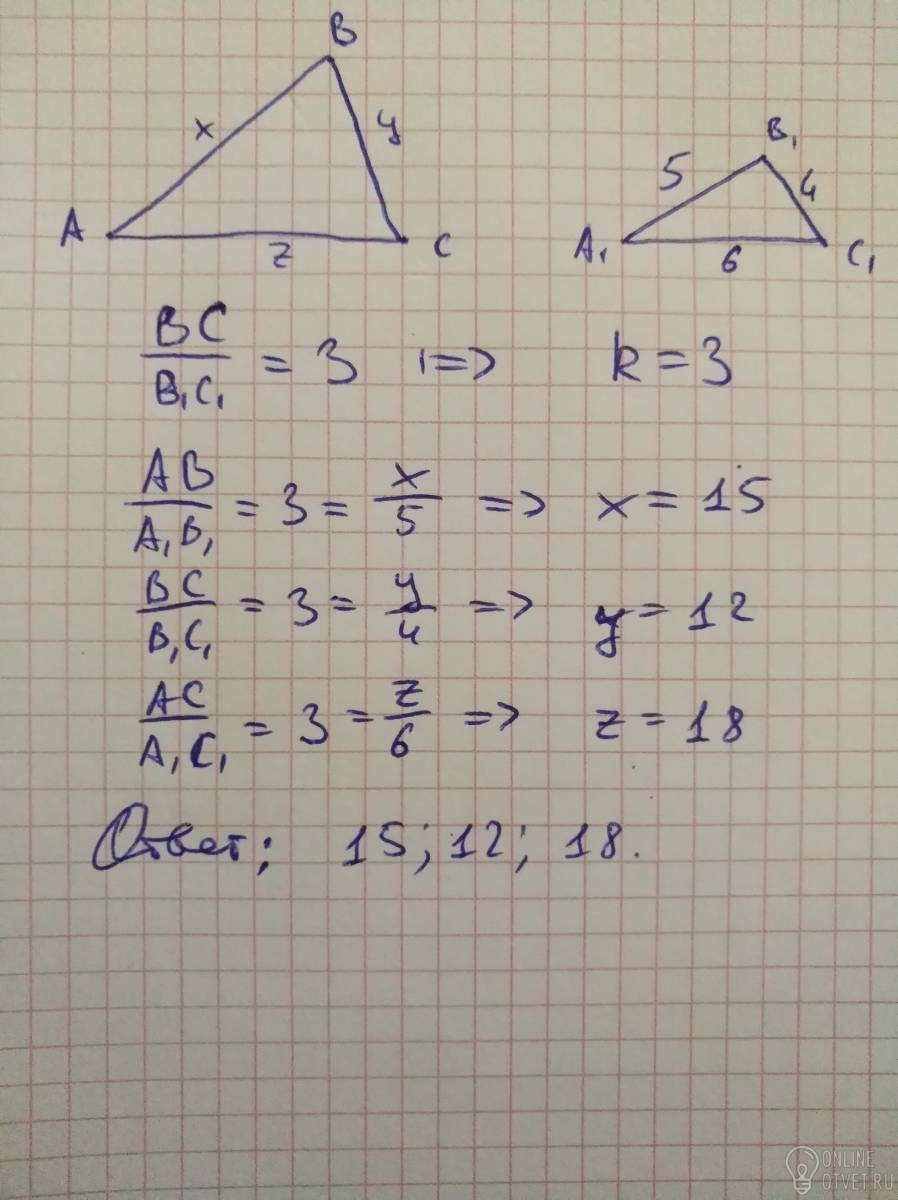 B
x y
A C
z
B₁
5 4
A₁ C₁
6
BC/B₁C₁ = 3 => k = 3
AB/A₁B₁ = 3 = x/5 => x = 15
BC/B₁C₁ = 3 = y/4 => y = 12
AC/A₁C₁ = 3 = z/6 => z = 18
Ответ: 15; 12; 18.
ONLINE
OTVET.RU